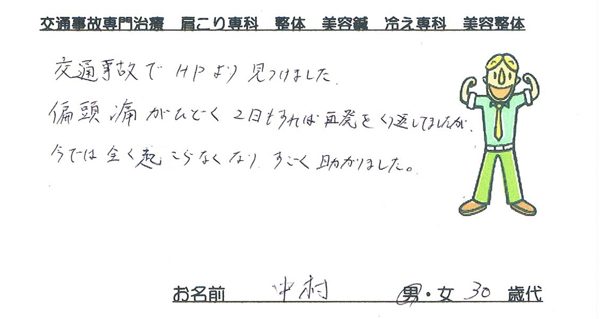 交通事故専門治療　肩こり専科　整体　美容鍼　冷え専科　美容整体
交通事故でHPより見つけました。
偏頭痛がひどく2日もすれば再発をくり返してましたが、
今では全く起こらなくなりすごく助かりました。
お名前　中村　男・女 30 歳代